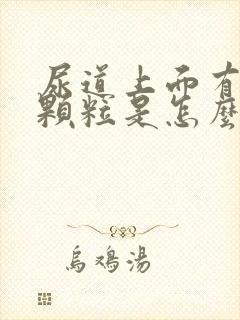 尿道上面有
顆粒是怎麼
烏鴉湯